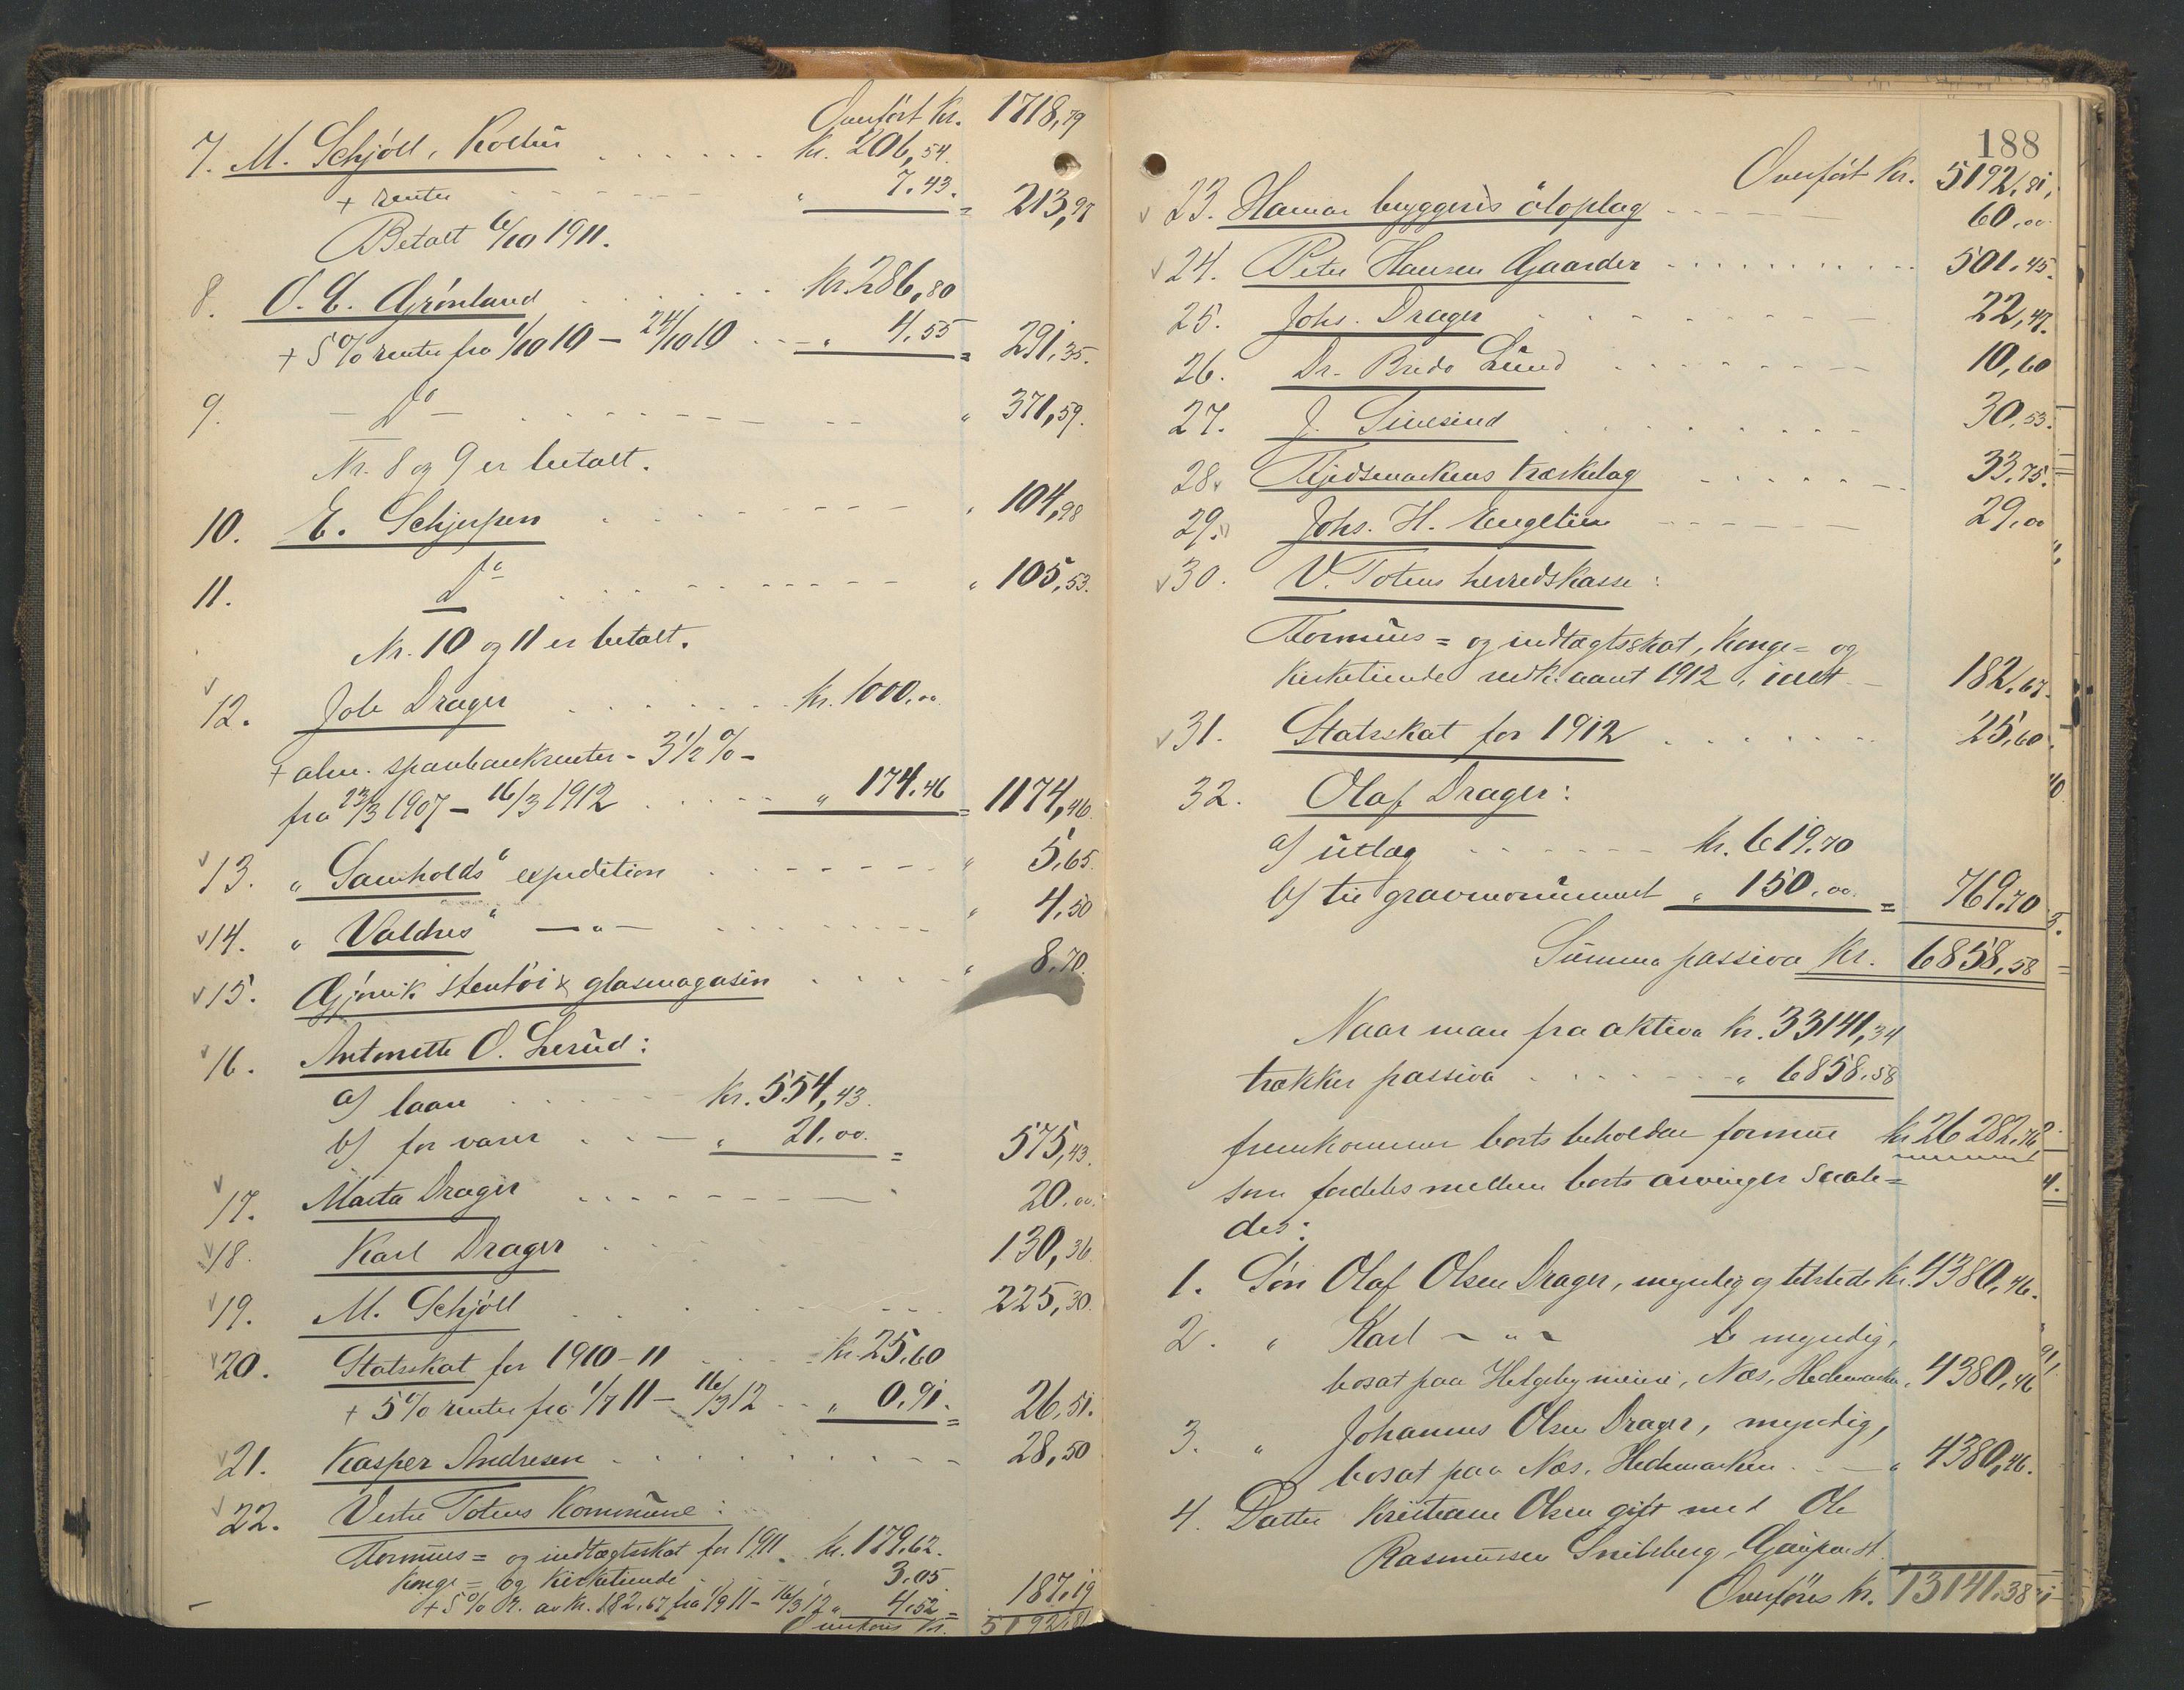 Overført kr. 1718,79
7. M. Schjöll, Kolbu . . . . . . kr. 206,54.
+ renter - - - - - " 7.43. = 213,97
Betalt 6/10 1911.
8. O. E. Grönland . . . . . . kr. 286,80
+ 5 % renter fra 1/10 10 — 24/10 10 . . - " 4,55 = 291,35.
9. — Do — . . . . . . . " 371,59.
Nr. 8 og 9 er betalt.
10. E. Schjerpen . . . . . . " 104,98
11. Do . . . . . . . " 105,53.
Nr. 10 og 11 er betalt.
12. Joh Drager . . . . . . kr. 1000,00
+ alm. sparebankrenter - 3 1/2 % -
fra 23/3 1907 — 16/3 1912 . . . . . " 174.46 = 1174,46.
13. „Samholds“ expedition . . . . . . " 5,65.
14. „Valdres“ — „ — . . . . . . " 4,50
15. Gjøvik stentöi & glasmagasin . . . . " 8.70.
16. Antonette O. Lerud:
a) laan . . . . . kr. 554,43.
b) for varer . . . — " 21.00. = 575,43.
17. Marta Drager . . . . . . . 20.00.
18. Karl Drager . . . . . . 130,36
19. M. Schjöll . . . . . . 225,30.
20. Statsskat for 1910-11 . . . . kr. 25.60
+ 5 % renter fra 1/7 11 — 16/3 12 . . " 0.91. = 26,51.
21. Kasper Andresen . . . . . . . 28,50
22. Vestre Totens Kommune:
Formues= og indtægtsskat for 1911. kr. 179.62.
Konge= og Kirketiende . . . . 3.05
+ 5 % r. av kr. 182.67 fra 1/9 11 — 16/3 12 „ 4,52 = 187.19
Overføres kr. 5192,81
188
Overført kr. 5192,81,
23. Hamar bryggeris öloplag . . . . . . 60.00
24. Peter Hansen Gaarder . . . . . . . . . 501.45.
25. Johs. Drager . . . . . . . . 22,47.
26. Dr. Bredo Lund . . . . . . . 10,60
27. J. Sivesind . . . . . . . . 30,53.
28. Fjeldsmarkens træskelag . . . . . . 33,75.
29. Johs. H. Engelien . . . . . . 29,00
30. V. Totens herredskasse:
Formues= og indtægtsskat, Konge= og
Kirketiende vedk. aaret 1912, ialt — 182,67.
31. Statsskat for 1912 . . . . . . 25,60.
32. Olaf Drager:
a) utlæg . . . . . . kr. 619.70
b) til gravmonument „ 150.00. = 769.70
Summa passiva Kr. 6858,58
Naar man fra aktiva kr. 33141,34
trækker passiva . . . . . . „ 6858.58
fremkommer boets beholdne formue kr. 26 282.76
som fordeles mellem boets arvinger saale=
des:
1. Søn Olaf Olsen Drager, myndig og tilstede kr. 4380,46.
2. „ Karl ~ „ ~ myndig,
bosat paa Helgeby meieri, Næs, Hedemarken „ 4380,46
3. „ Johannes Olsen Drager, myndig,
bosat paa Næs, Hedemarken . . — „ 4380,46.
4. Datter Kristiane Olsen gift med Ole
Rasmussen Snilsberg,
Overføres kr. 13141.38